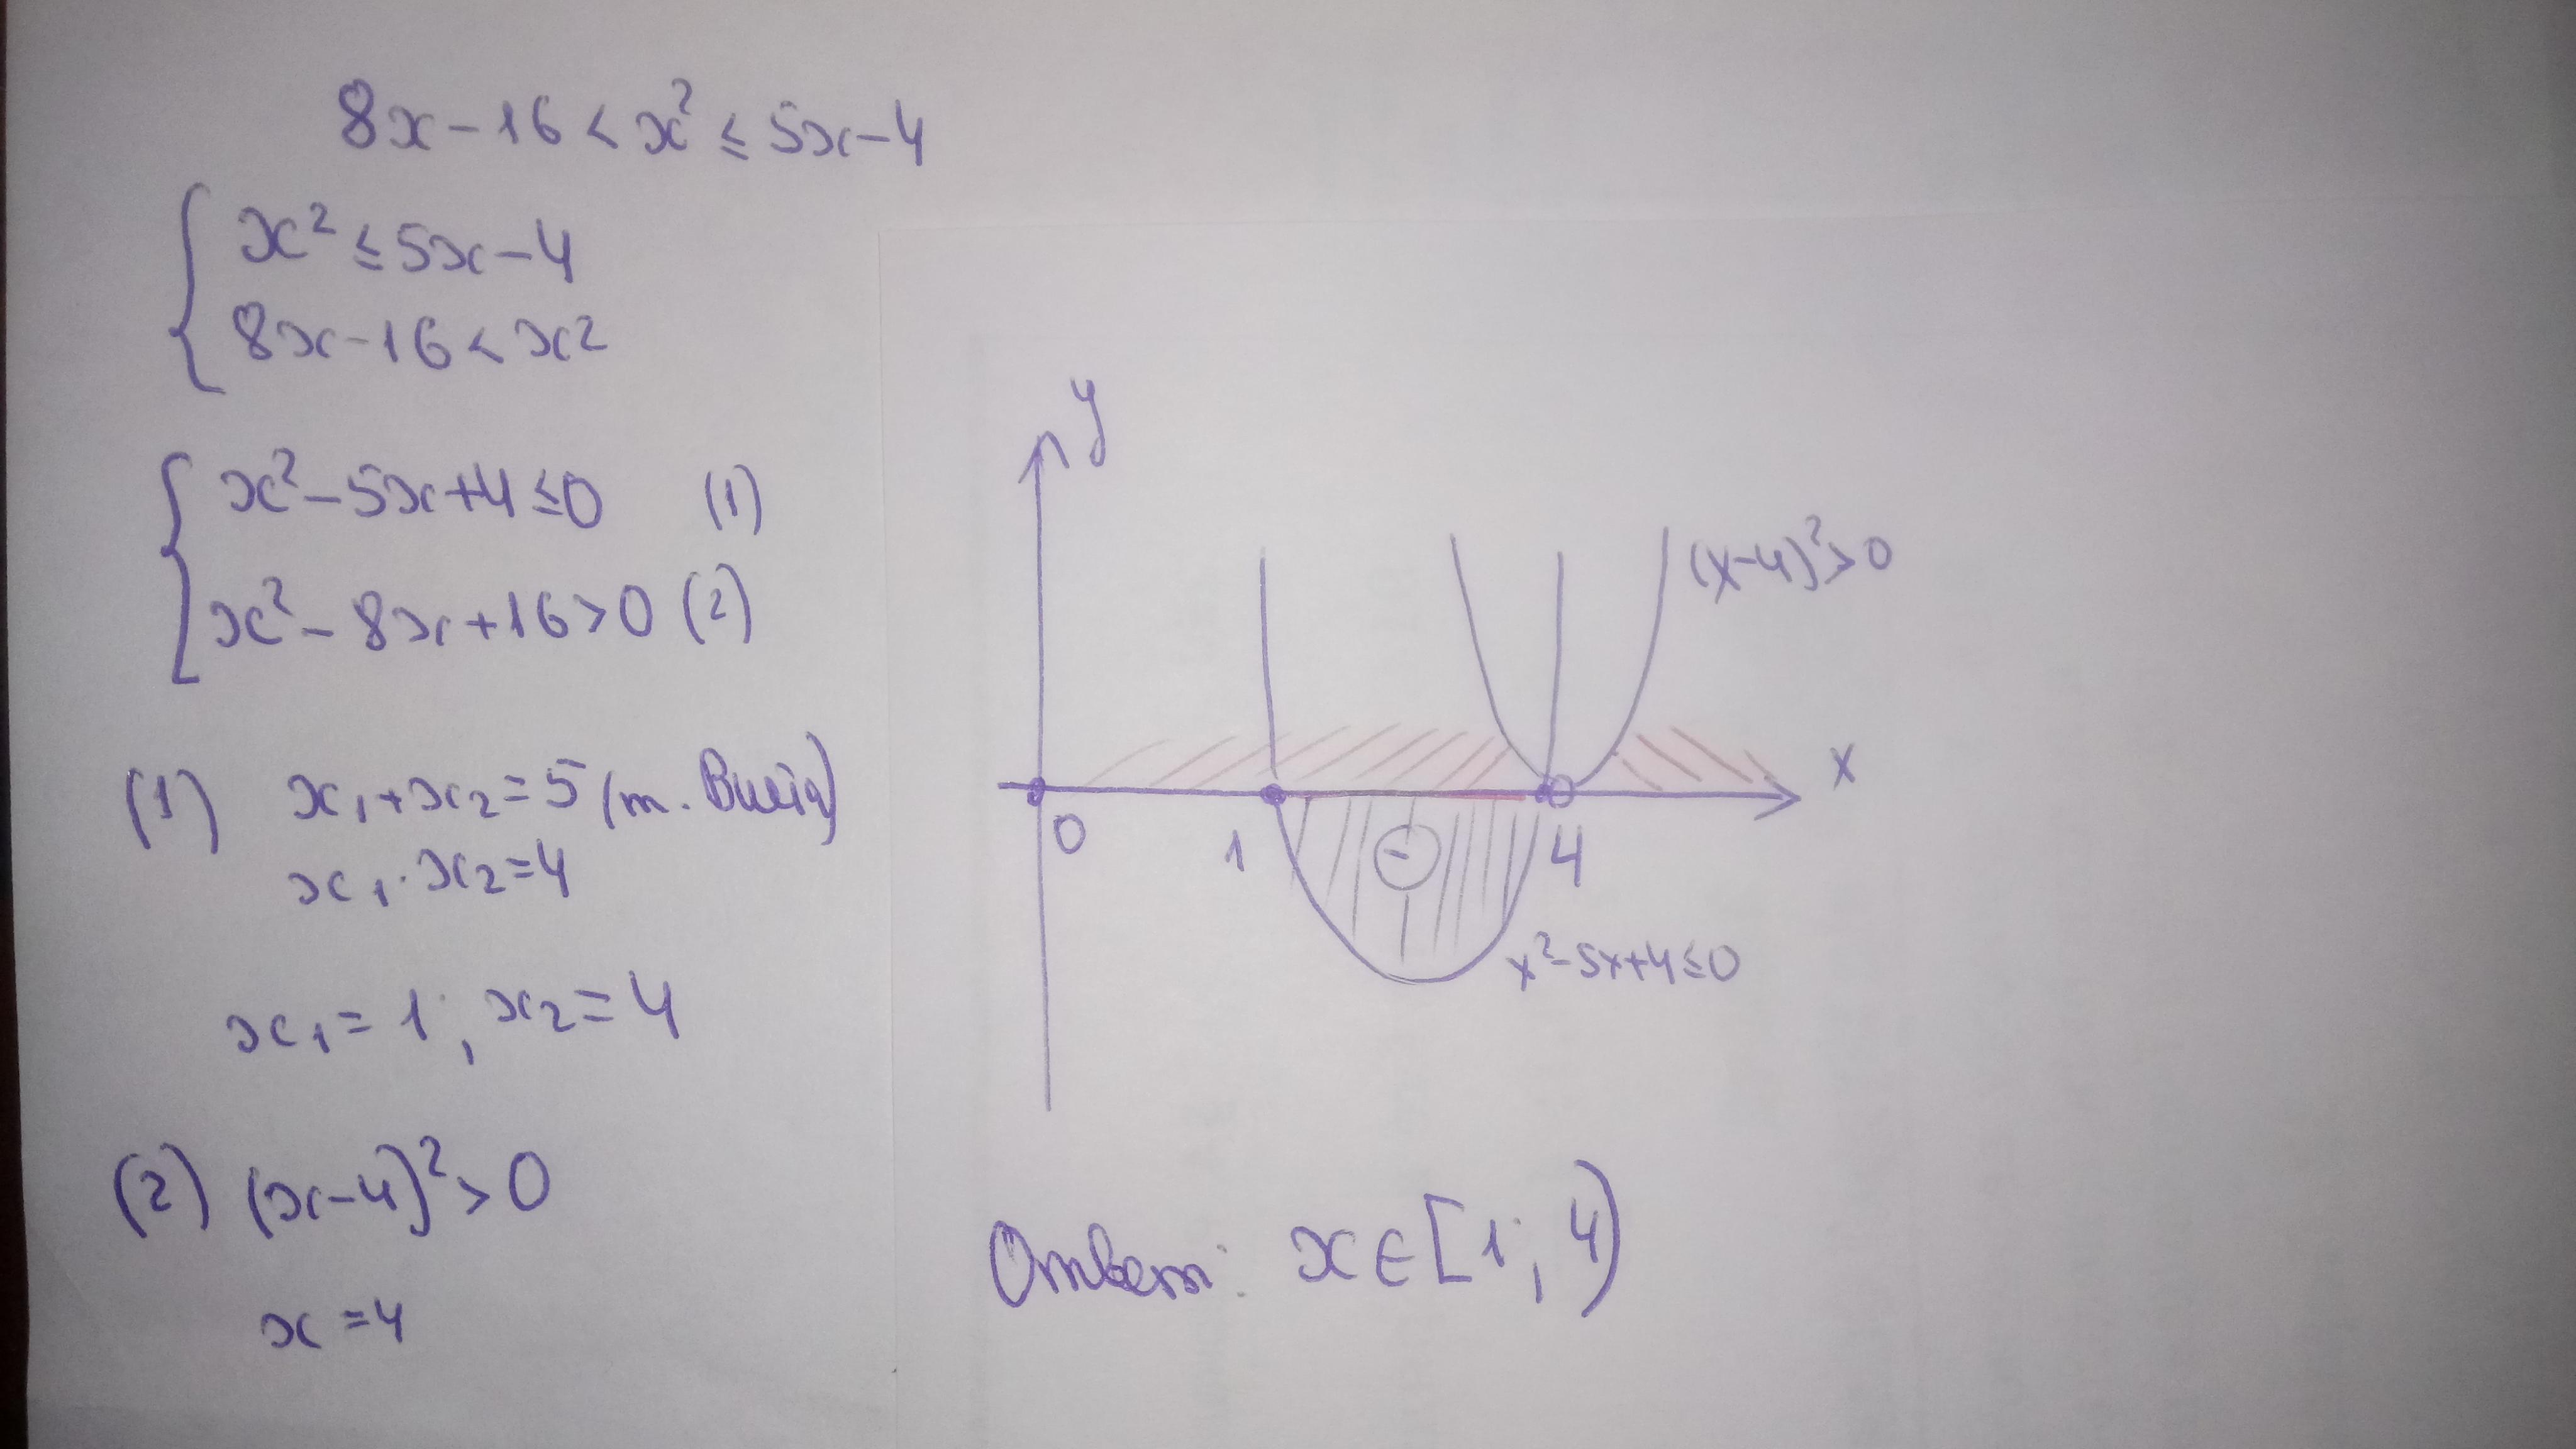 8x-16<x²≤5x-4
x²≤5x-4
8x-16<x²
x²-5x+4≤0 (1)
x²-8x+16>0 (2)
(1) x₁+x₂=5 (т. Виета)
x₁·x₂=4
x₁=1; x₂=4
(2) (x-4)²>0
x=4
y
(x-4)²>0
x
0
1
-
4
x²-5x+4≤0
Ответ: x∈[1; 4)